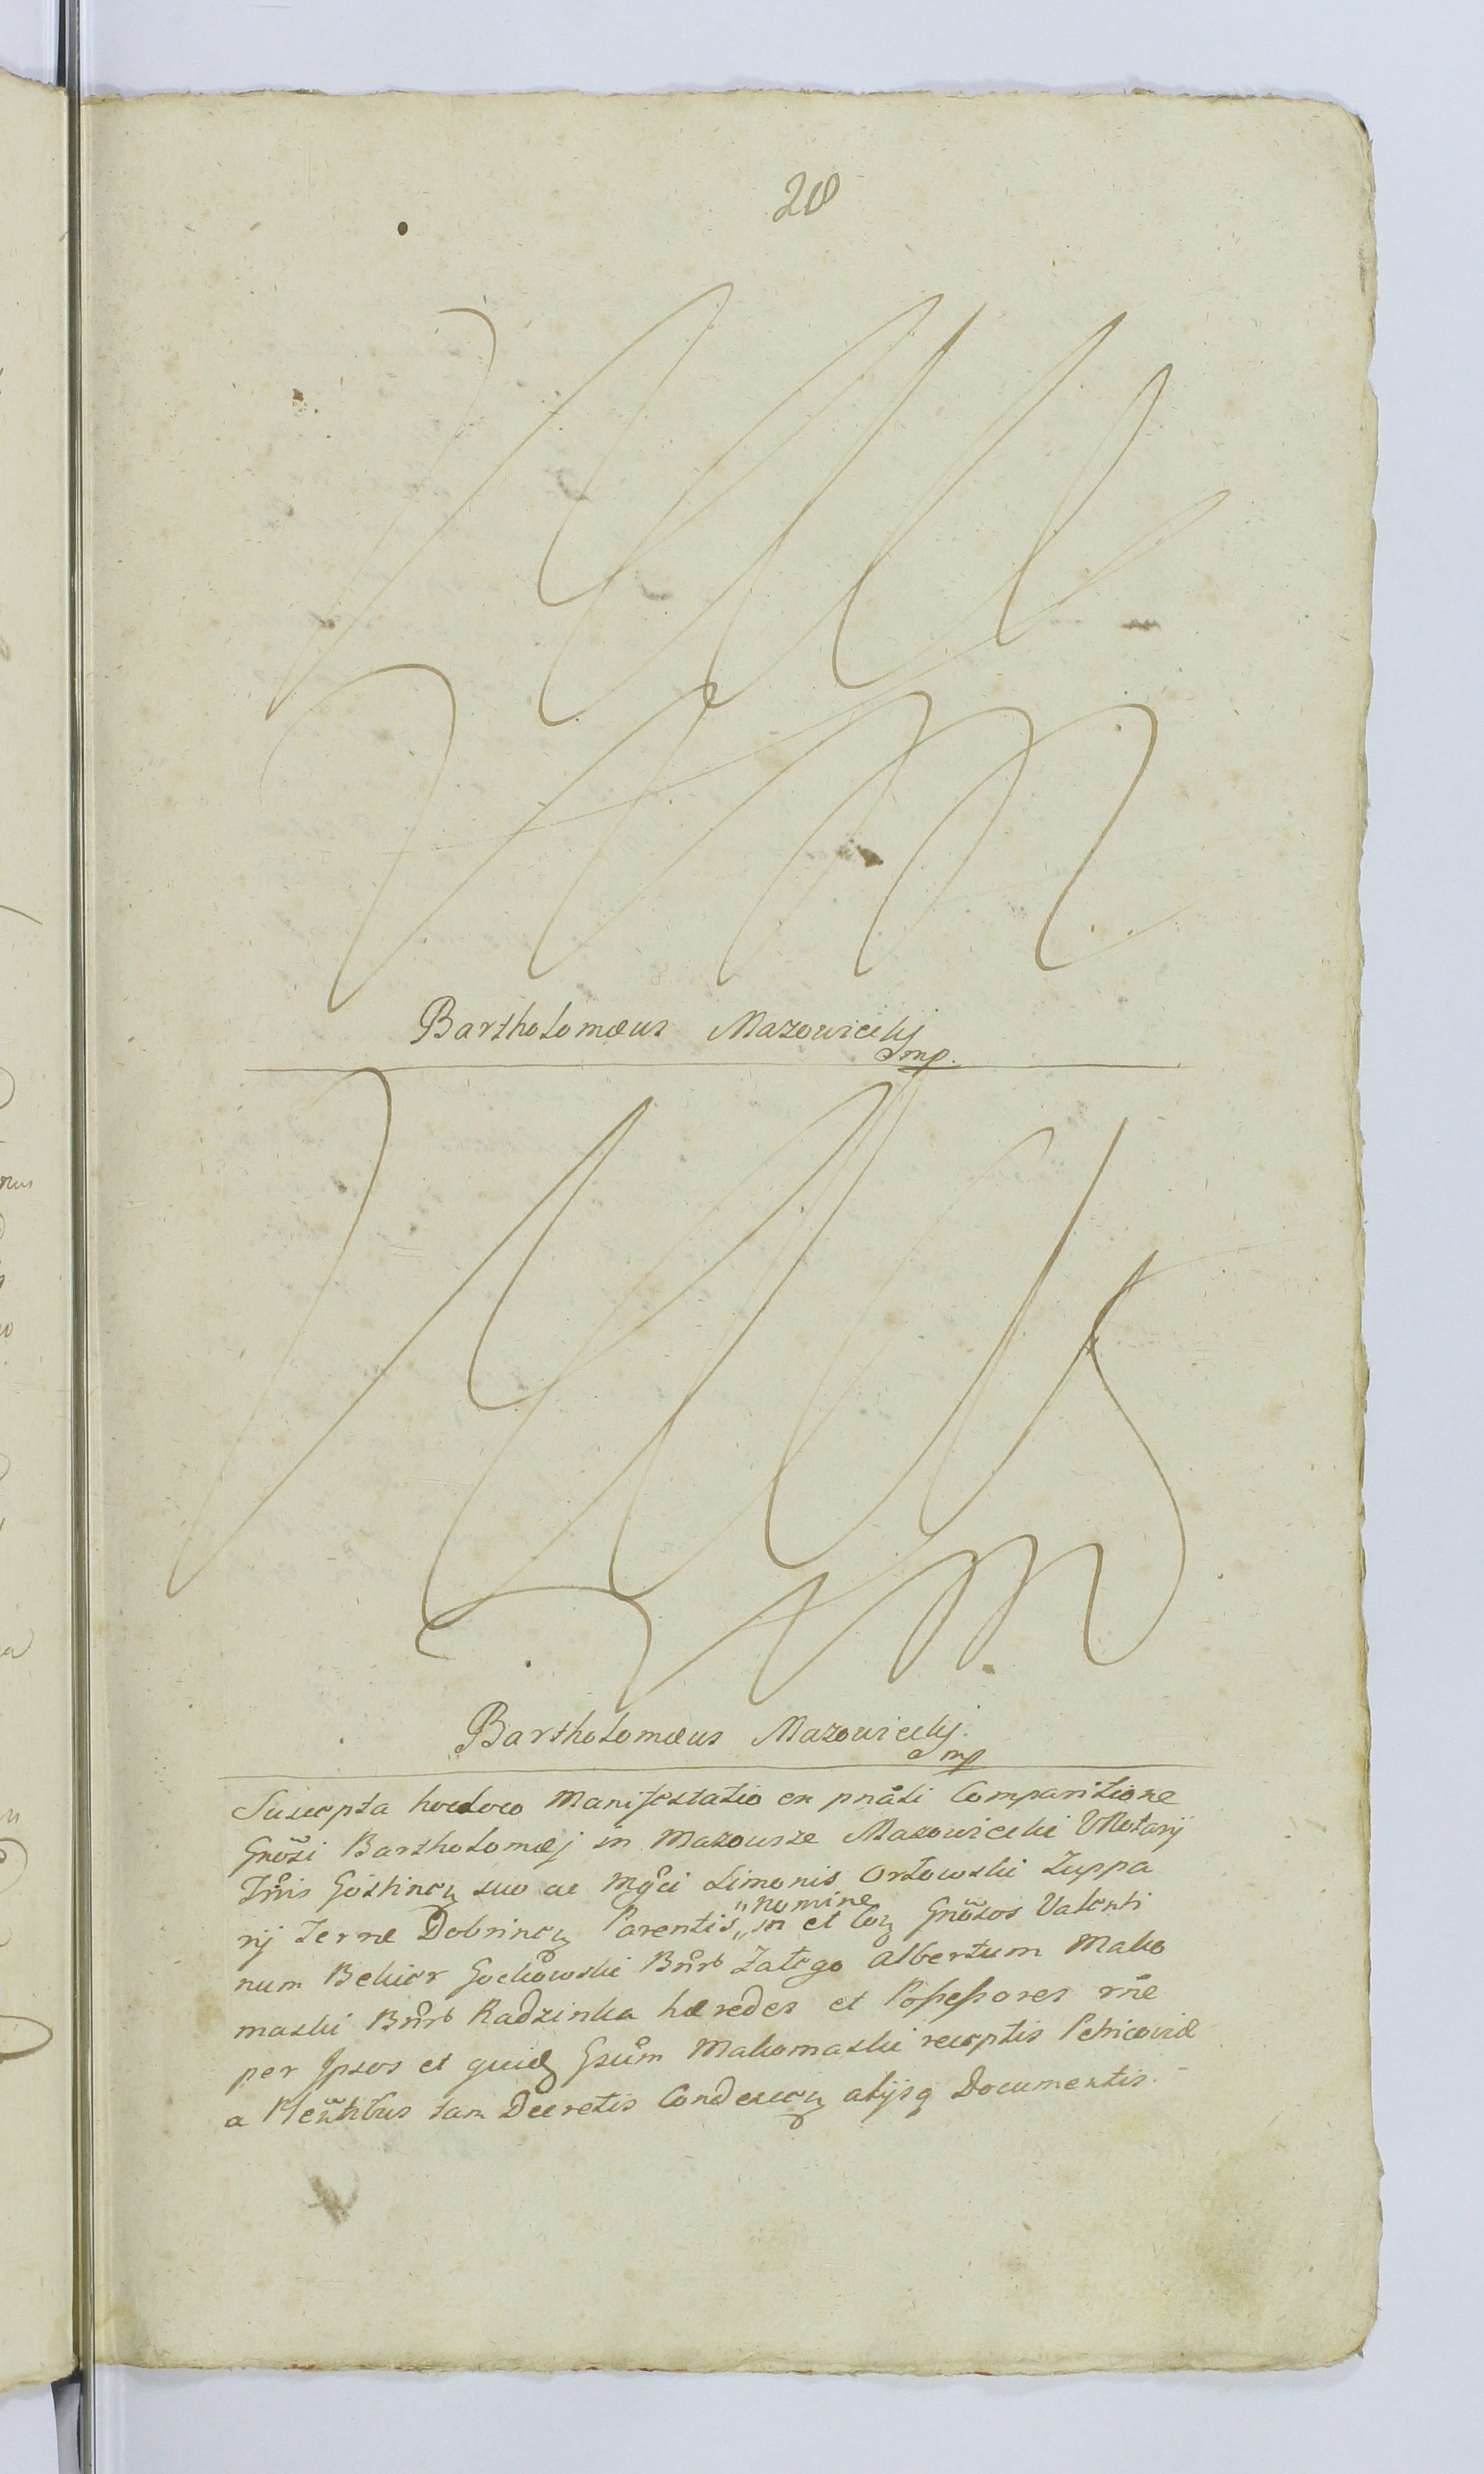 20
Bartholomæus Mazowieckij
mp.
Bartholomæus Mazowieckij.
mp
Suscepta hocloco Manifestatio ex pnãti Comparitione
Gnõsi Bartholomæj in Mazowsze Mazowiecki VNotarij
Gostinen suo ac Mgci Simonis Orłowski Zuppa
rij Terræ Dobrinen Parentis „nomine„ in et Gnõsos Valenti
num Gockowski Bnrb Albertum Mako
maski Bnrb Radzinka hæredes et Possessores rñe
per Ipsos et quidem Makomaski receptis Petricoviæ
a tam Decretis Condescen alijsq Documentis.